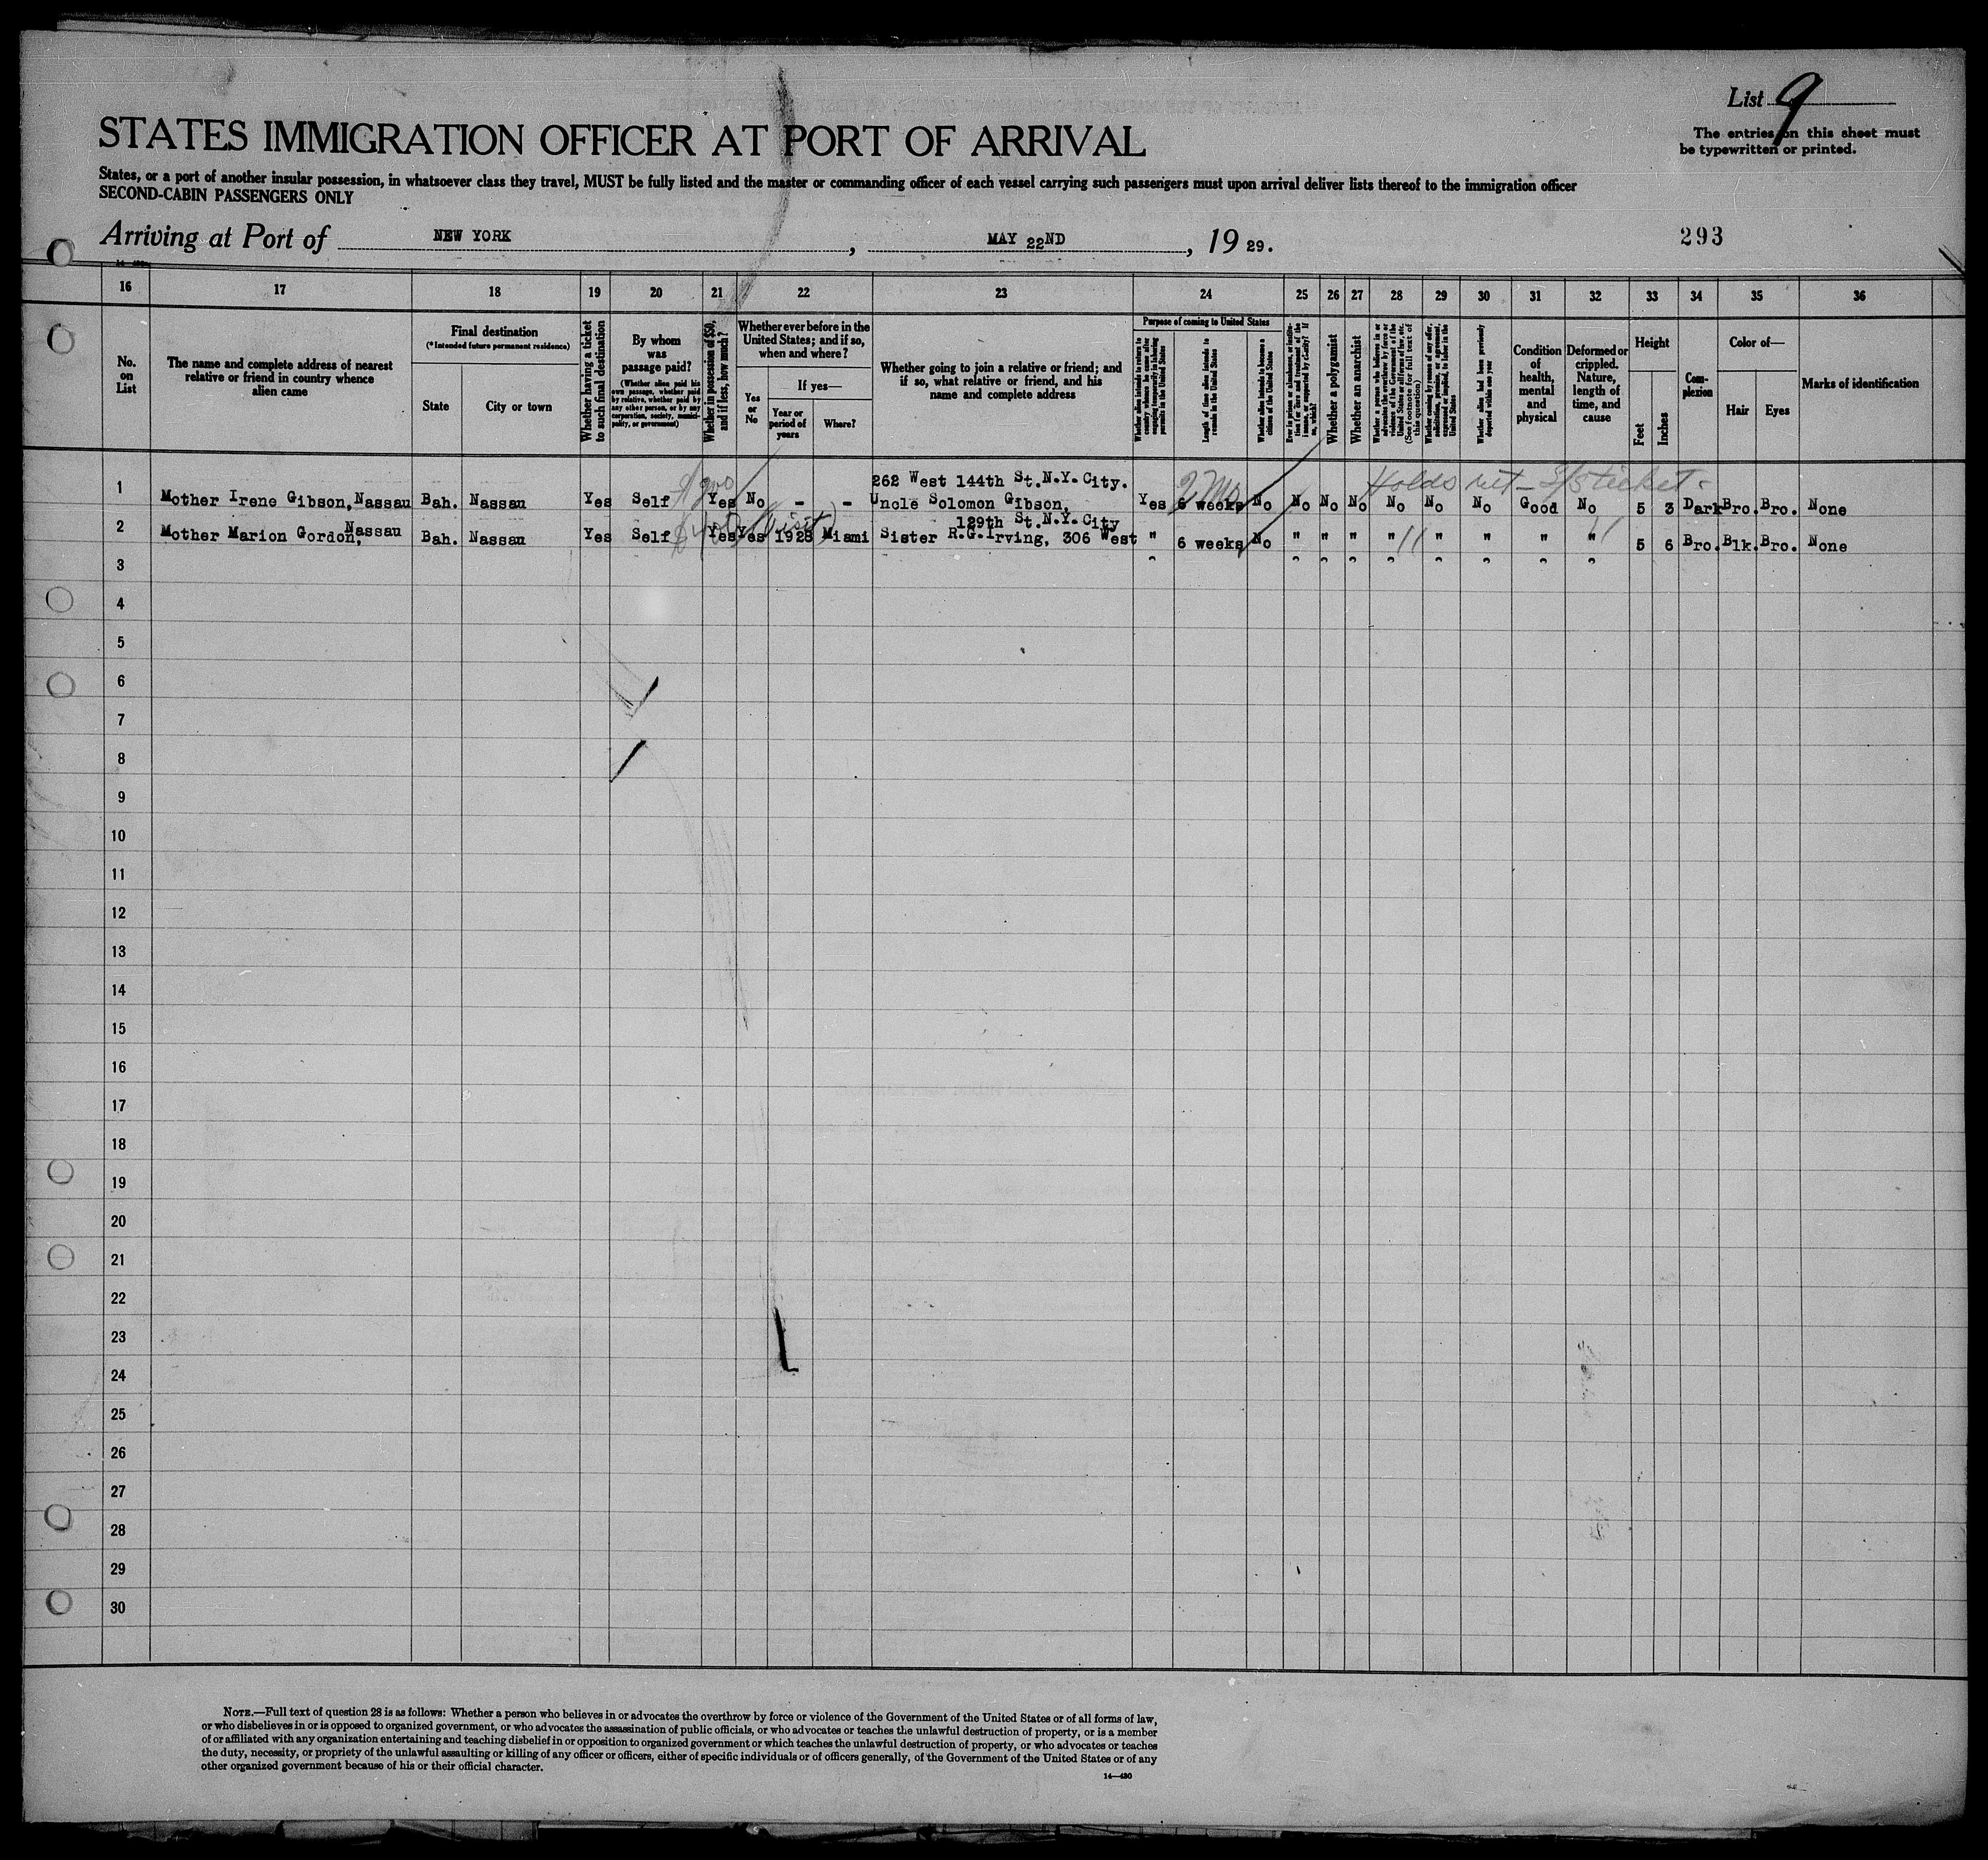 List 9
The entries on this sheet must
be typewritten or printed.
STATES IMMIGRATION OFFICER AT PORT OF ARRIVAL
States, or a port of another insular possession, in whatsoever class they travel, MUST be fully listed and the master or commanding officer of each vessel carrying such passengers must upon arrival deliver lists thereof to the immigration officer
SECOND-CABIN PASSENGERS ONLY
Arriving at Port of NEW YORK, MAY 22ND, 1929.
293
16 17 18 19 20 21 22 23 24 25 26 27 28 29 30 31 32 33 34 35 36
No.
on
List
The name and complete address of nearest
relative or friend in country whence
alien came
Final destination
(*Intended future permanent residence)
State
City or town
Whether having a ticket
to such final destination
By whom
was
passage paid?
(Whether alien paid his
own passage, whether paid
by relative, whether paid by
any other person, or by any
corporation, society, munici-
pality, or government)
Whether in possession of $50,
and if less, how much?
Whether ever before in the
United States; and if so,
when and where?
Yes
or
No
If yes—
Year or
period of
years
Where?
Whether going to join a relative or friend; and
if so, what relative or friend, and his
name and complete address
Purpose of coming to United States
Whether alien intends to return to
country whence he came after
engaging temporarily in laboring
pursuits in the United States
Length of time alien intends to
remain in the United States
Whether alien intends to become a
citizen of the United States
Ever in prison or almshouse, or institu-
tion for care and treatment of the
insane, or supported by charity? If
so, which?
Whether a polygamist
Whether an anarchist
Whether a person who believes in or
advocates the overthrow by force or
violence of the Government of the
United States or all forms of law, etc.
(See footnote for full text of
this question)
Whether coming by reason of any offer,
solicitation, promise, or agreement,
expressed or implied, to labor in the
United States
Whether alien had been previously
deported within one year
Condition
of
health,
mental
and
physical
Deformed or
crippled.
Nature,
length of
time, and
cause
Height
Feet
Inches
Com-
plexion
Color of—
Hair
Eyes
Marks of identification
262 West 144th St.N.Y.City. 2 Mo Holds ret- S/S ticket.
1 Mother Irene Gibson,Nassau Bah. Nassau Yes Self Yes No - - Uncle Solomon Gibson, Yes 6 weeks No No No No No No No Good No 5 3 Dark Bro. Bro. None
Nassau (Visit) 129th St.N.Y.City
2 Mother Marion Gordon, Bah. Nassau Yes Self Yes Yes 1928 Miami Sister R.G.Irving, 306 West " 6 weeks No " " " " " " " " 5 6 Bro. Blk. Bro. None
3
4
5
6
7
8
9
10
11
12
13
14
15
16
17
18
19
20
21
22
23
24
25
26
27
28
29
30
NOTE.—Full text of question 28 is as follows: Whether a person who believes in or advocates the overthrow by force or violence of the Government of the United States or of all forms of law,
or who disbelieves in or is opposed to organized government, or who advocates the assassination of public officials, or who advocates or teaches the unlawful destruction of property, or is a member
of or affiliated with any organization entertaining and teaching disbelief in or opposition to organized government or which teaches the unlawful destruction of property, or who advocates or teaches
the duty, necessity, or propriety of the unlawful assaulting or killing of any officer or officers, either of specific individuals or of officers generally, of the Government of the United States or of any
other organized government because of his or their official character.
14—430